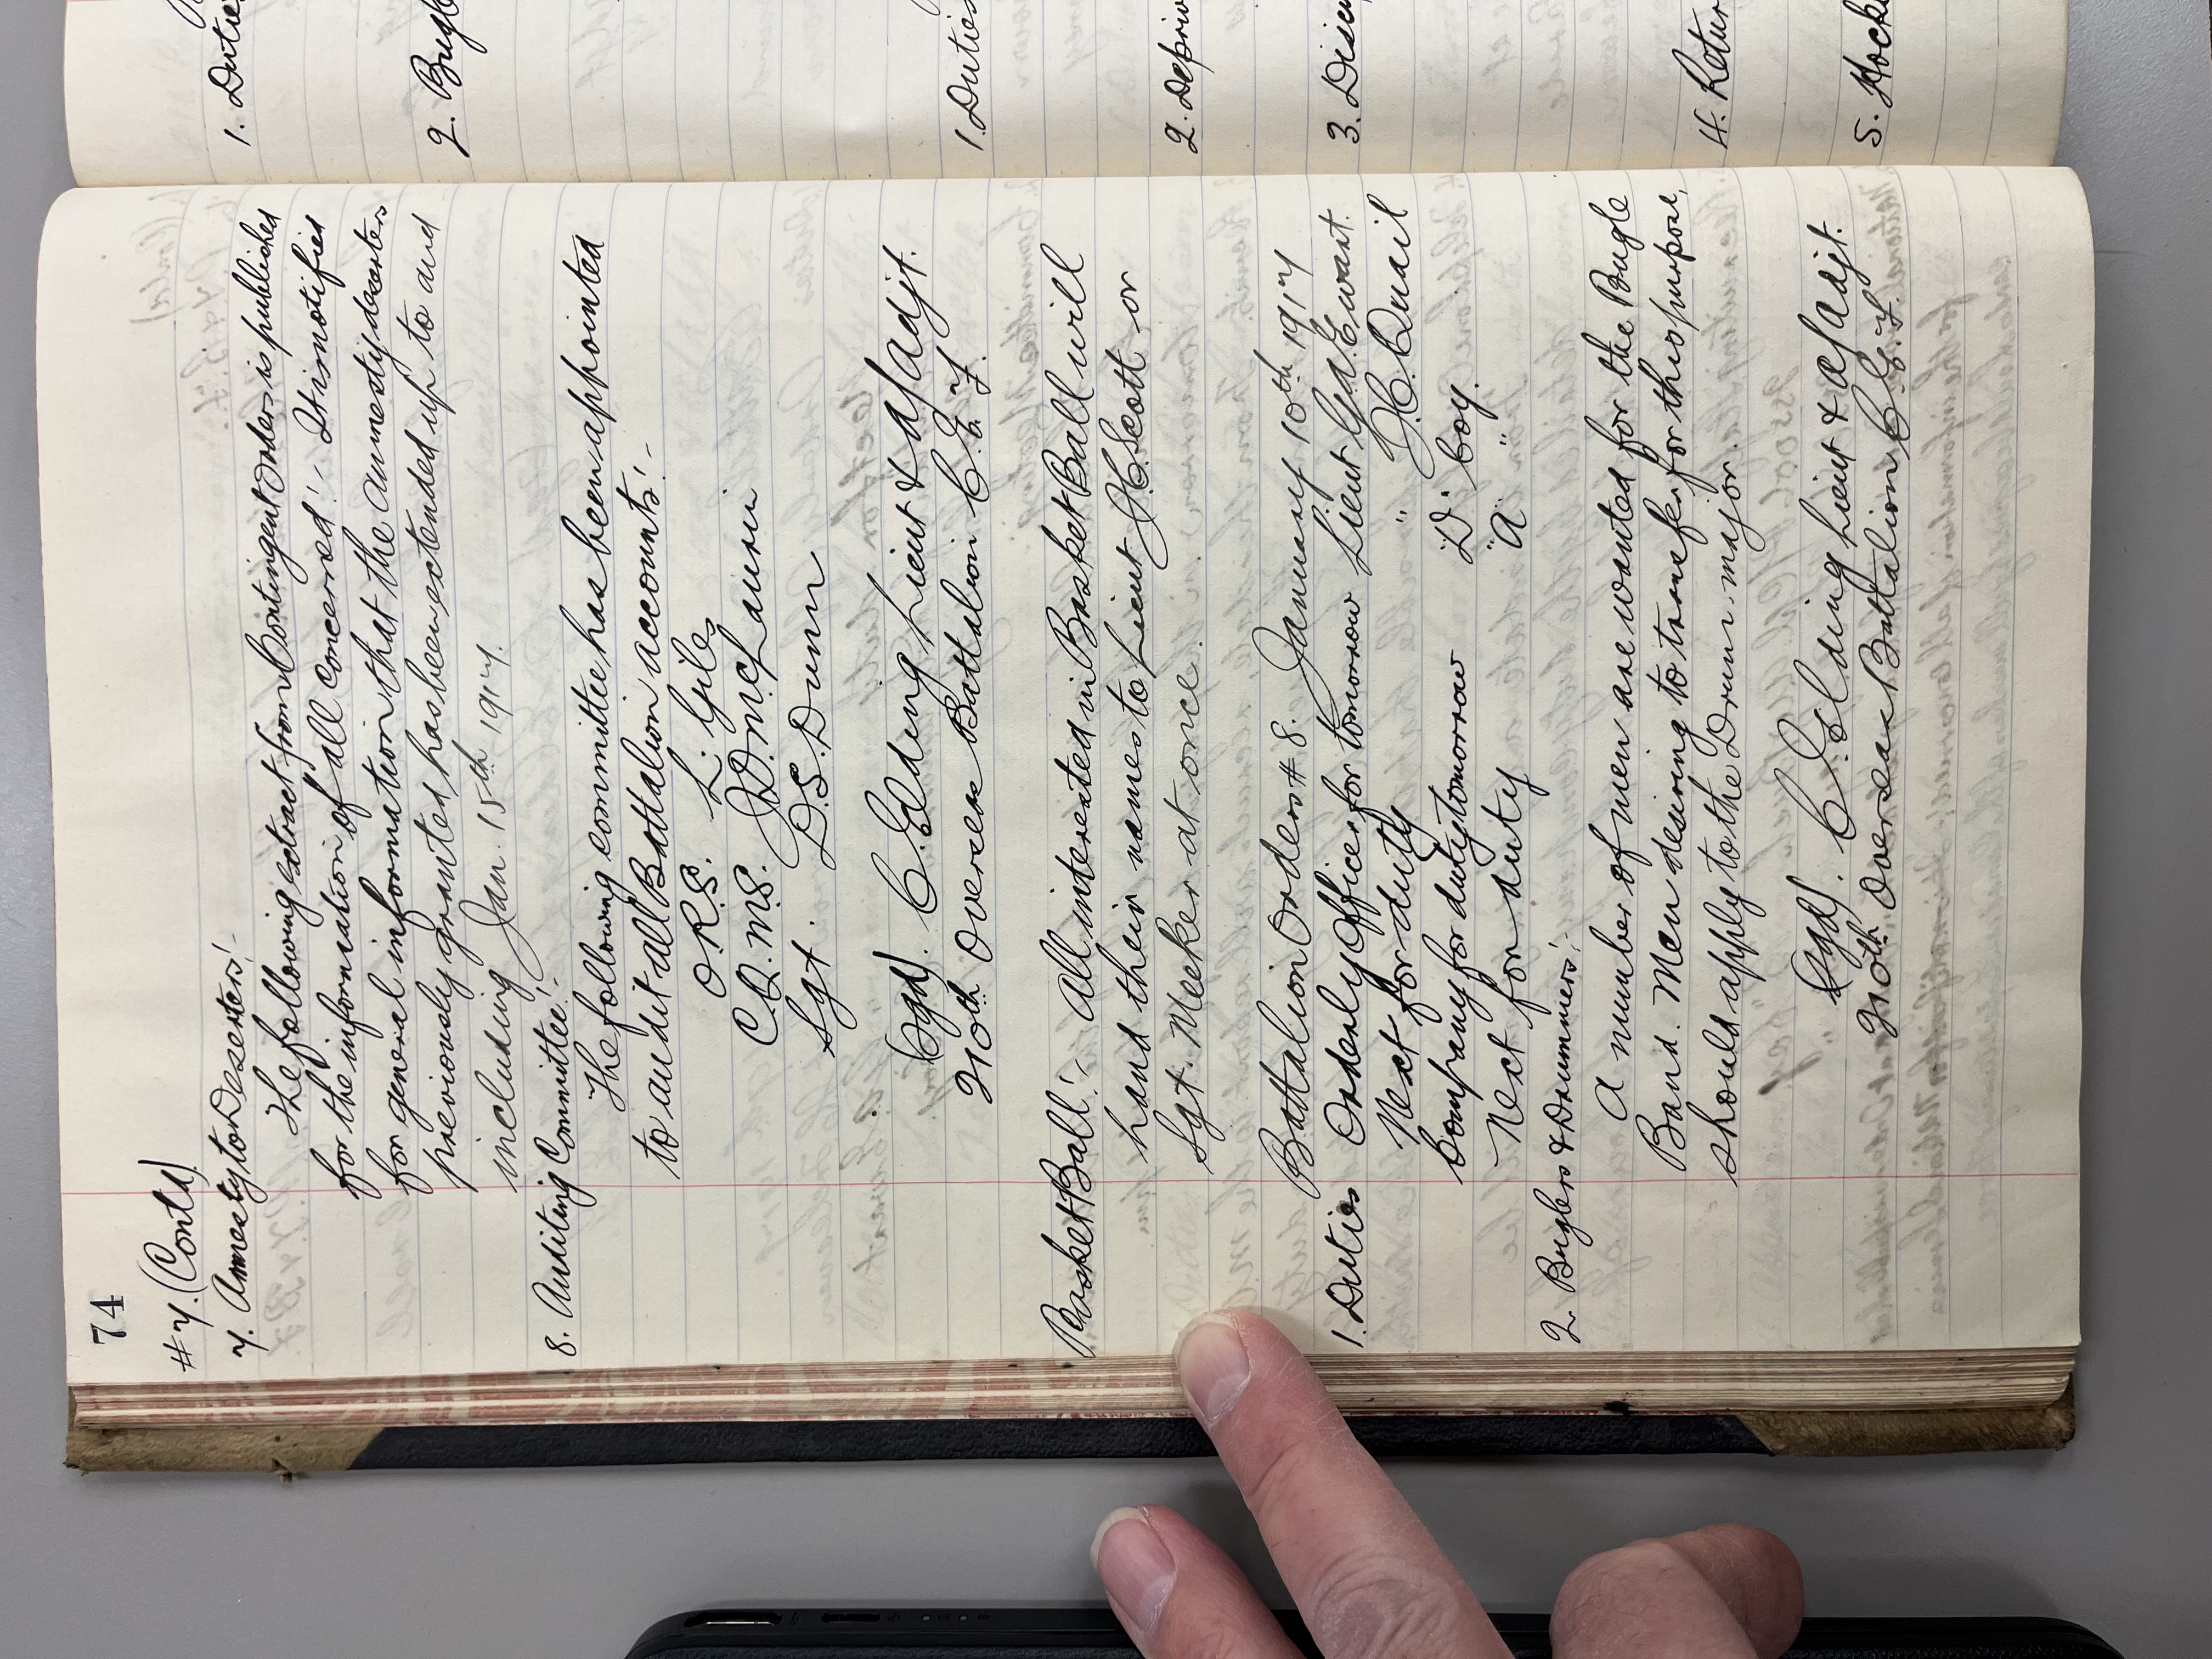 74
# 7. (Contd)
7. Amnesty to Deserters:-
The following extract from Contingent Orders is published
for the information of all concerned:- It is notified
for general information that the Amnesty deserters
previously granted has been extended up to and
including Jan. 15th 1917.
8. Auditing Committee:-
The following committee has been appointed
to audit all Battalion accounts:-
O.R.S. L. Giles
C.Q.M.S. J.D. McLaurin
Sgt. D.S. Dunn
(Sgd). C. Elding Lieut & a/adjt.
210th Overseas Battalion C.E.F.
Basket Ball:- All interested in Basket Ball will
hand their names to Lieut J.C. Scott or
Sgt. Meeker at once.
Battalion Orders # 8. January 10th 1917
1. Duties Orderly Officer for tomorrow Lieut Geo. E. Ewart.
Next for duty " J.C. Quail
Company for duty tomorrow "D" Coy.
Next for duty "A" "
2. Buglers & Drummers:-
A number of men are wanted for the Bugle
Band. Men desiring to transfer for this purpose,
should apply to the Drum-major.
(Sgd). C. Elding Lieut & a/adjt.
210th Overseas Battalion C.E.F.
1. Duties
2. Bugle
1. Duties
2. Depriv
3. Disci
4. Retur
5. Hocke